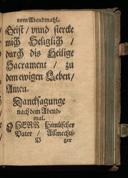 vom Abendmahl.
Geist / vnnd stercke
mich Seliglich /
durch diß Heilige
Sacrament / zu
dem ewigen Leben /
Amen.
Dancksagunge
nach dem Abend-
mal.
O HERR Himlischer
Vater / Allmechti-
ger